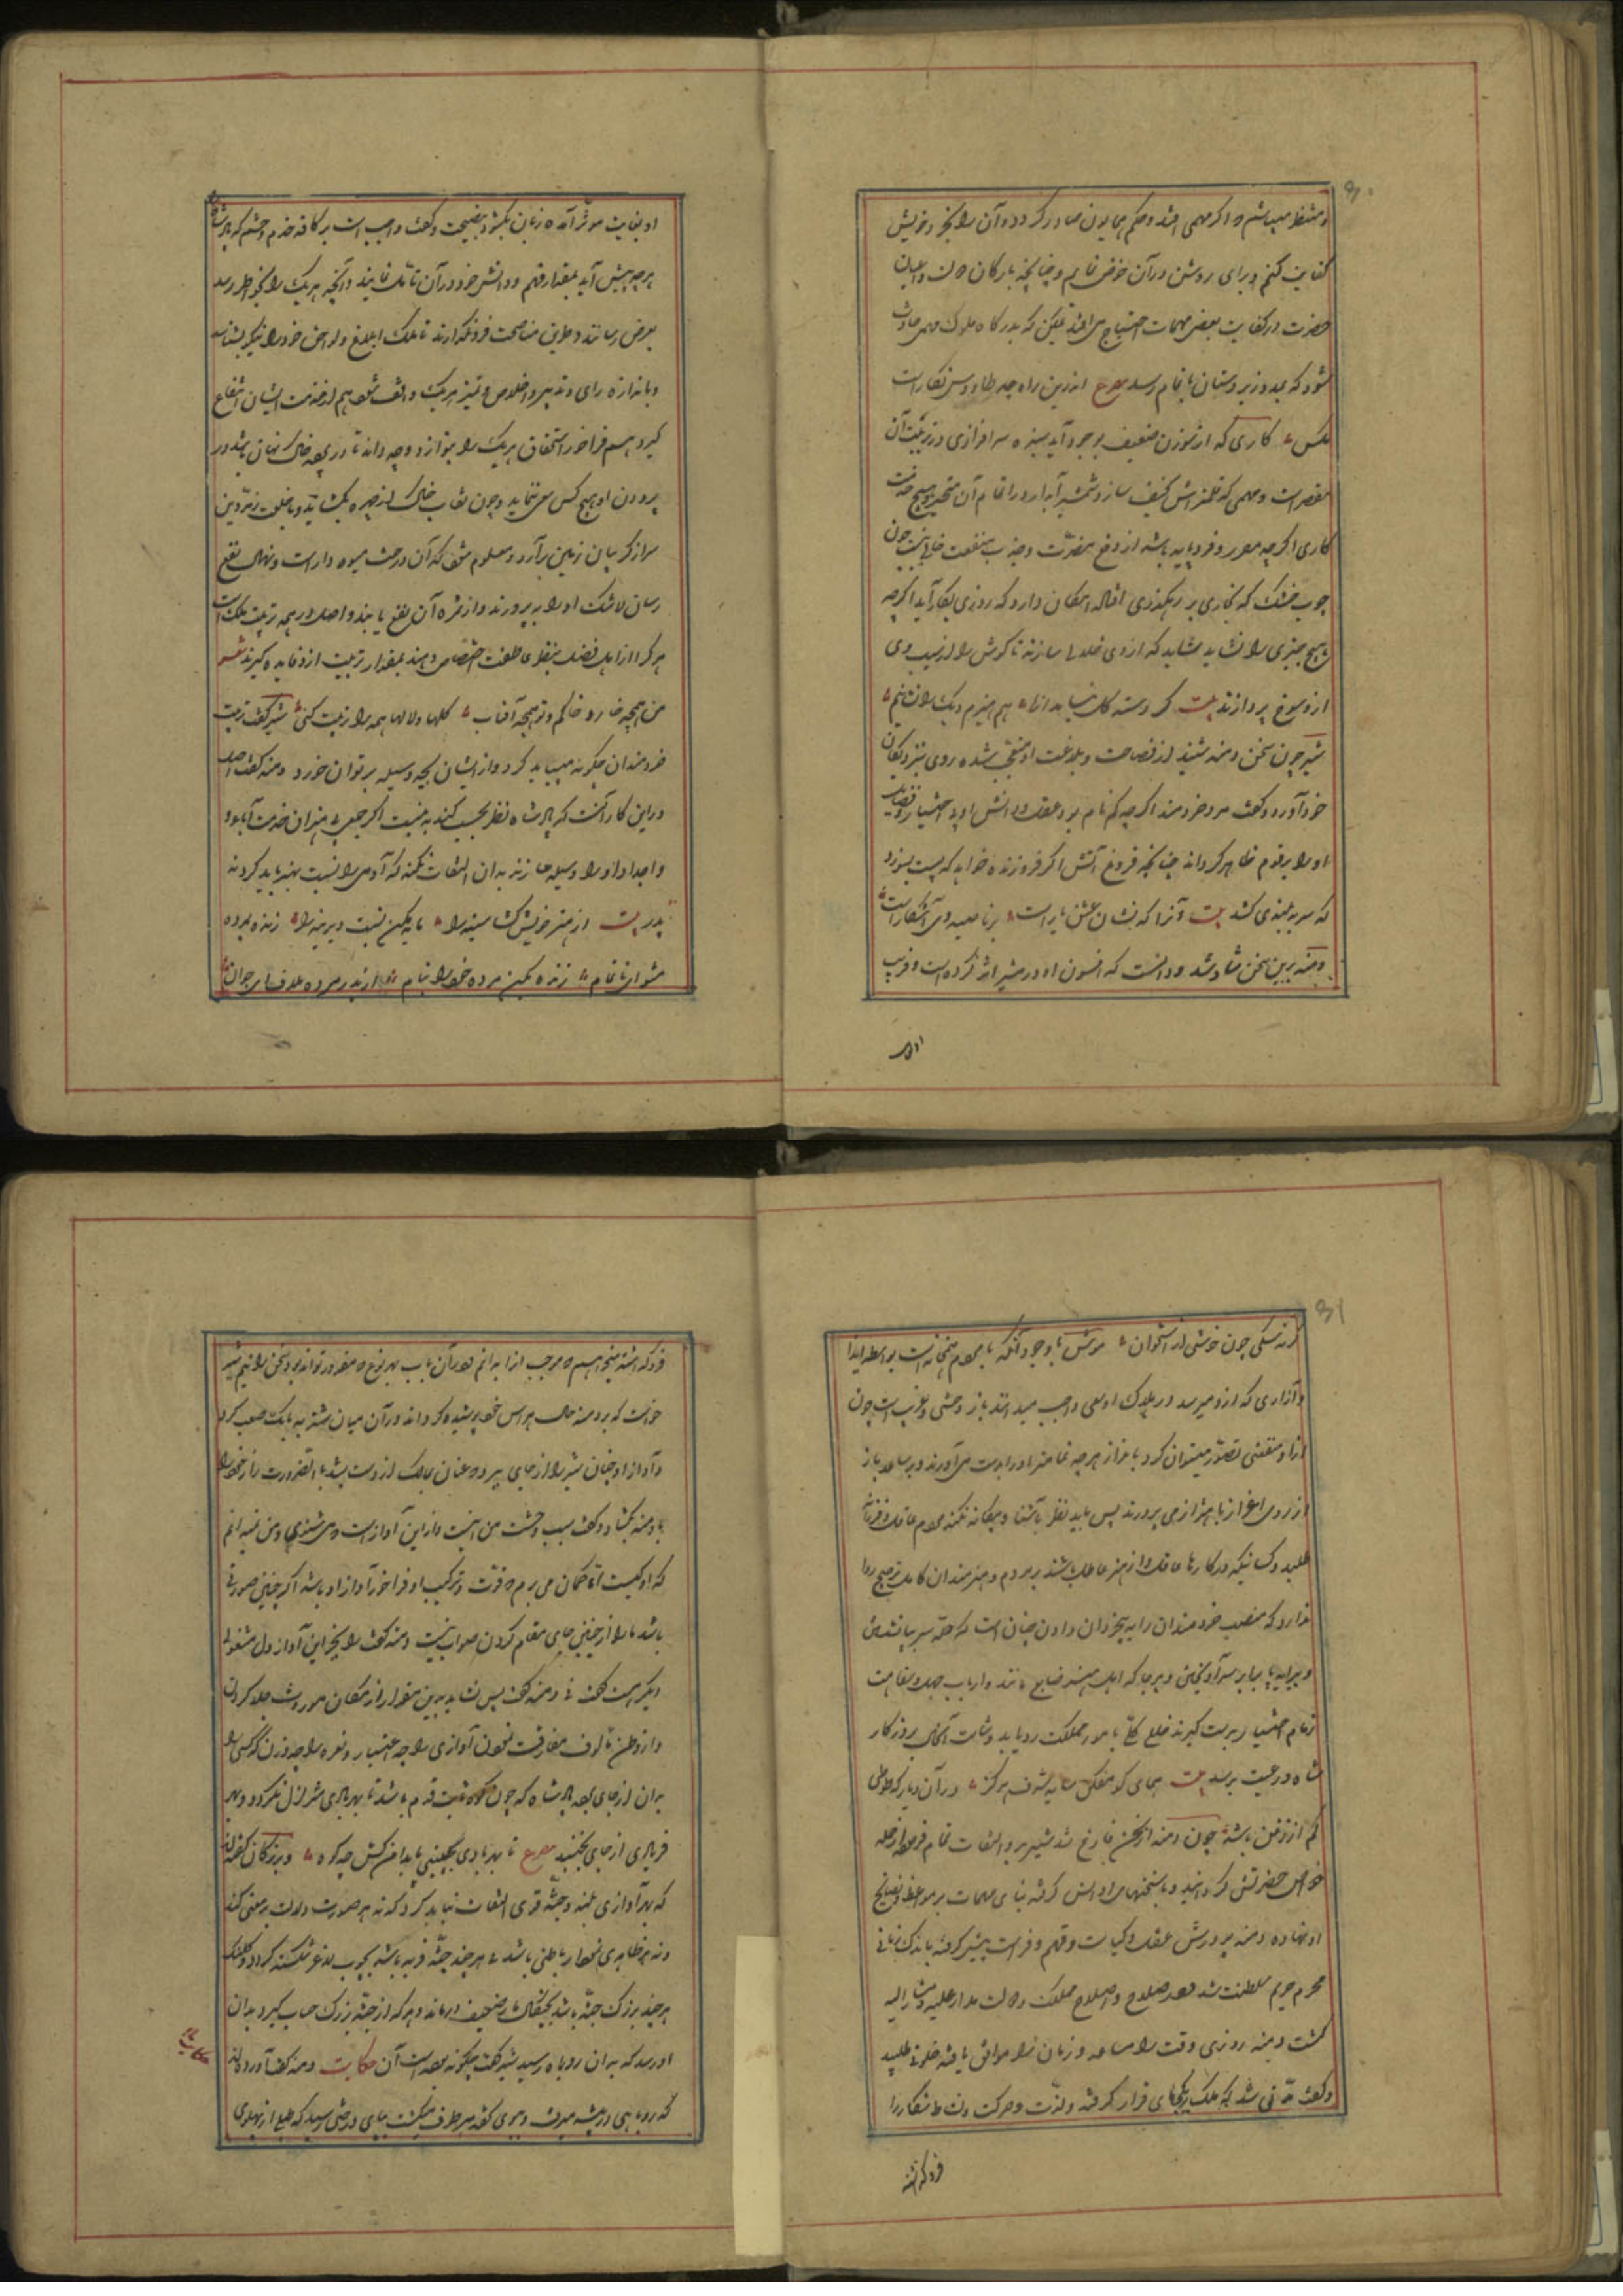 ۳۰
و منتظر میباشم که اگر مهمی افتد و حکم همایون صادر گردد و آن را بخرد خویش
کفایت کنم و برای روشن در آن خوض نمایم و چنانچه بارکان دولت و اعیان
حضرت در کفایت بعضی مهمات احتیاج می افتد ممکن که بدرگاه ملوک مهمی حادث
شود که بمدد زیردستان باتمام رسد مصرع اندرین راه چو طاوس بکارست
مکس کاری که از سوزن ضعیف بوجود آید نیزه سرافرازی در ترتیب آن
مقصر است و مهمی که قلمتراش نحیف سازد شمشیر آبدار در اتمام آن متحیر و هیچ خدمت
کاری اگرچه بیقدر و فرومایه باشد از دفع مضرت و جذب منفعت خالی نیست چون
چوب خشک که بخاری بر رهگذری افتاده امکان دارد که روزی بکار آید اگرچه
هیچ چیزی را نشاید شاید که از وی خلالی سازند تا گوش را از آسیب وی
از وسخ پردازند بیت گر دسته گل نیاید از ما هم هیزم دیگ را بشائیم
شیر چون سخن دمنه شنید از فصاحت و بلاغت او متعجب شده روی بنزدیکان
خود آورد و گفت مرد خردمند اگرچه گمنام بود عقل و دانش او بی اختیار فضایل
او را بر قوم ظاهر گرداند چنانچه فروغ آتش اگر فروزنده خواهد که پست بسوزد
که سر به بلندی کشد بیت آنرا که نشان عشق یار است بر ناصیه وی آشکار است
دمنه برین سخن شاد شد و دانست که افسون او در شیر اثر کرده است و فریب
او بغایت موثر آمده زبان بگشود بنصیحت و گفت واجب است بر کافه خدم و حشم که پادشاه را
هرچه پیش آید بمقدار فهم و دانش خود در آن تامل نمایند و آنچه هر یک را بخاطر رسد
بعرض رسانند و طریق مناصحت فرونگذارند تا ملک اتباع و لواحق خود را نیکو بشناسد
و باندازه رای و تدبیر و اخلاص و تمیز هر یک واقف شود هم از خدمت ایشان انتفاع
گیرد هم فراخور استحقاق هر یک را بنوازد و چه دانه تا در پرده خاک نهان باشد در
پروردن او هیچ کس سعی ننماید و چون نقاب خاک از چهره بگشاید و با خلعت زمردین
سر از گریبان زمین برآرد و معلوم شود که آن درخت میوه دار است و نهال نفع
رسان لاشک او را بپرورند و از ثمره آن نفع یابند و اصل در همه تربیت ملوکست
هر کرا از اهل فضل بنظر عاطفت اختصاص دهند بمقدار تربیت از او فایده گیرند شعر
من همچو خار و خاکم و تو همچو آفتاب گلها و لالها همه را تربیت کنی شیر گفت تربیت
خردمندان چگونه میباید کرد و از ایشان بچه وسیله بر توان خورد دمنه گفت اصل
در این کار آنست که پادشاه نظر بحسب کند نه بنسبت اگر جمعی بی هنران خدمت آبا
و اجداد او را وسیله سازند بدان التفات نکند که آدمی را نسبت بهنر باید کرد نه
پدر بیت از هنر خویش گشا سینه را مایه مکن نسبت دیرینه را زنده بمرده
مشو ای ناتمام زنده بکن مرده خود را بنام از پدر مرده ملاف ای جوان
اوبغا
۳۱
گرنه سگی چون خوشی از استخوان موش با وجود آنکه با مردم همخانه است بواسطه ایذا
و آزاری که از او میرسد در هلاک او سعی واجب میدانند باز وحشی و غریب است چون
از او منفعتی تصور میتوان کرد باعزاز هرچه تمامتر او را بدست می آورند و بر ساعد ناز
از روی اعزاز باهتزاز می پرورند پس باید نظر بآشنا و بیگانه نکند مردم عاقل و فرزانه
طلبد و کسانیکه در کارها غافل و از هنر عاطل باشند بر مردم و هنرمندان کامل ترجیح روا
ندارد که منصب خردمندان را به بیخردان دادن چنان است که حله سر بپا بستن
و پیرایه پا بر سر آویختن و هرجا که اهل هنر ضایع مانند و ارباب جهل و سفاهت
زمام اختیار بدست گیرند خلل کلی بامور مملکت رو یابد و شامت آنحال بروزگار
شاه و رعیت برسد بیت همای گو مفکن سایه شرف هرگز در آن دیار که طوطی
کم از زغن باشد چون دمنه از سخن فارغ شد شیر برو التفات تمام فرمود از جمله
خواص حضرتش گردانید و با سخنهای او انس گرفته بنای مهمات بر مواعظ و نصایح
او نهاده دمنه بر روش عقل و کیاست و فهم و فراست پیش گرفته باندک زمانی
محرم حریم سلطنت شد و در صلاح و اصلاح مملکت و دولت مدار علیه و مشار الیه
گشت دمنه روزی وقت را مساعد و زمان را موافق یافته خلوتی طلبید
و گفت مدتی شد که ملک بر یکجای قرار گرفته و لذت و حرکت و نشاط شکار را
فروگذاشته
فروگذاشته میخواهم که موجب آنرا بدانم و در آن باب بهر نوع که مقدور تواند بود سخن رانیم شیر
خواست که بر دمنه حال هراس خود پوشیده گرداند در آن میان شنزبه بانگ صعب کرد
و آواز او چنان شیر را از جای ببرد که عنان تمالک از دست بشد بالضرورت راز خود را
با دمنه بگشاد و گفت سبب وحشت من اینست و از این آواز است که می شنوی و من نمیدانم
که او کیست اما گمان می برم که قوت و ترکیب او فراخور آواز او باشد اگر چنین صورتی
باشد ما را از چنین جای مقام کردن صواب نیست دمنه گفت ملک را بجز این آواز دل مشغولی
دیگر هست گفت نی دمنه گفت پس نشاید بدین مقدار از مکان موروث جلا کردن
و از وطن مالوف مفارقت نمودن آوازی را چه اعتبار و نعره را چه وزن که کسی را
بدان از جای برد پادشاه که چون کوه ثابت قدم باشد تا بهر بادی متزلزل نگردد و بهر
فریادی از جای نجنبد مصرع تا بهر بادی نجنبی پا بدامن کش چو کوه و بزرگان گفته اند
که بهر آوازی بلند و جثه قوی التفات نباید کرد که نه هر صورت دلالت بر معنی کند
و نه هر ظاهری نمودار باطنی باشد نی هر چند جثه فربه باشد بچوب لاغر شکسته گردد و کلنگ
هر چند بزرگ جثه باشد بچنگال باز ضعیف درماند و هر که از جثه بزرگ حساب گیرد بدان
او رسد که بدان روباه رسید شیر گفت چگونه بوده است آن حکایت دمنه گفت آورده اند
که روباهی در بیشه میرفت و ببوی طعمه هر طرف میگشت بپای درختی رسید که طبلی از پهلوی
حکایت